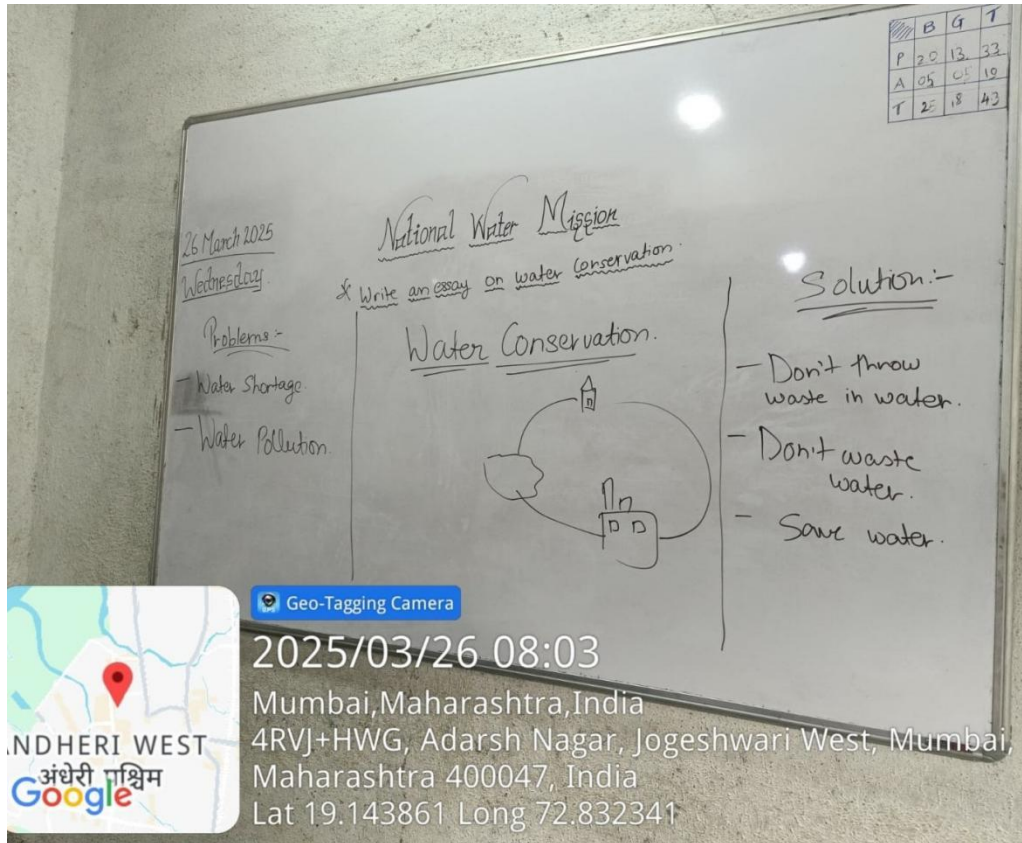 B G T
P 20 13 33
A 05 05 10
T 25 18 43
26 March 2025
Wednesday
National Water Mission
* Write an essay on water conservation.
Problems :-
- Water Shortage.
- Water Pollution.
Water Conservation.
Solution :-
- Don't throw
waste in water.
- Don't waste
water.
- Save water.
Geo-Tagging Camera
2025/03/26 08:03
Mumbai,Maharashtra,India
4RVJ+HWG, Adarsh Nagar, Jogeshwari West, Mumbai,
Maharashtra 400047, India
Lat 19.143861 Long 72.832341
NDHERI WEST
अंधेरी पश्चिम
Google